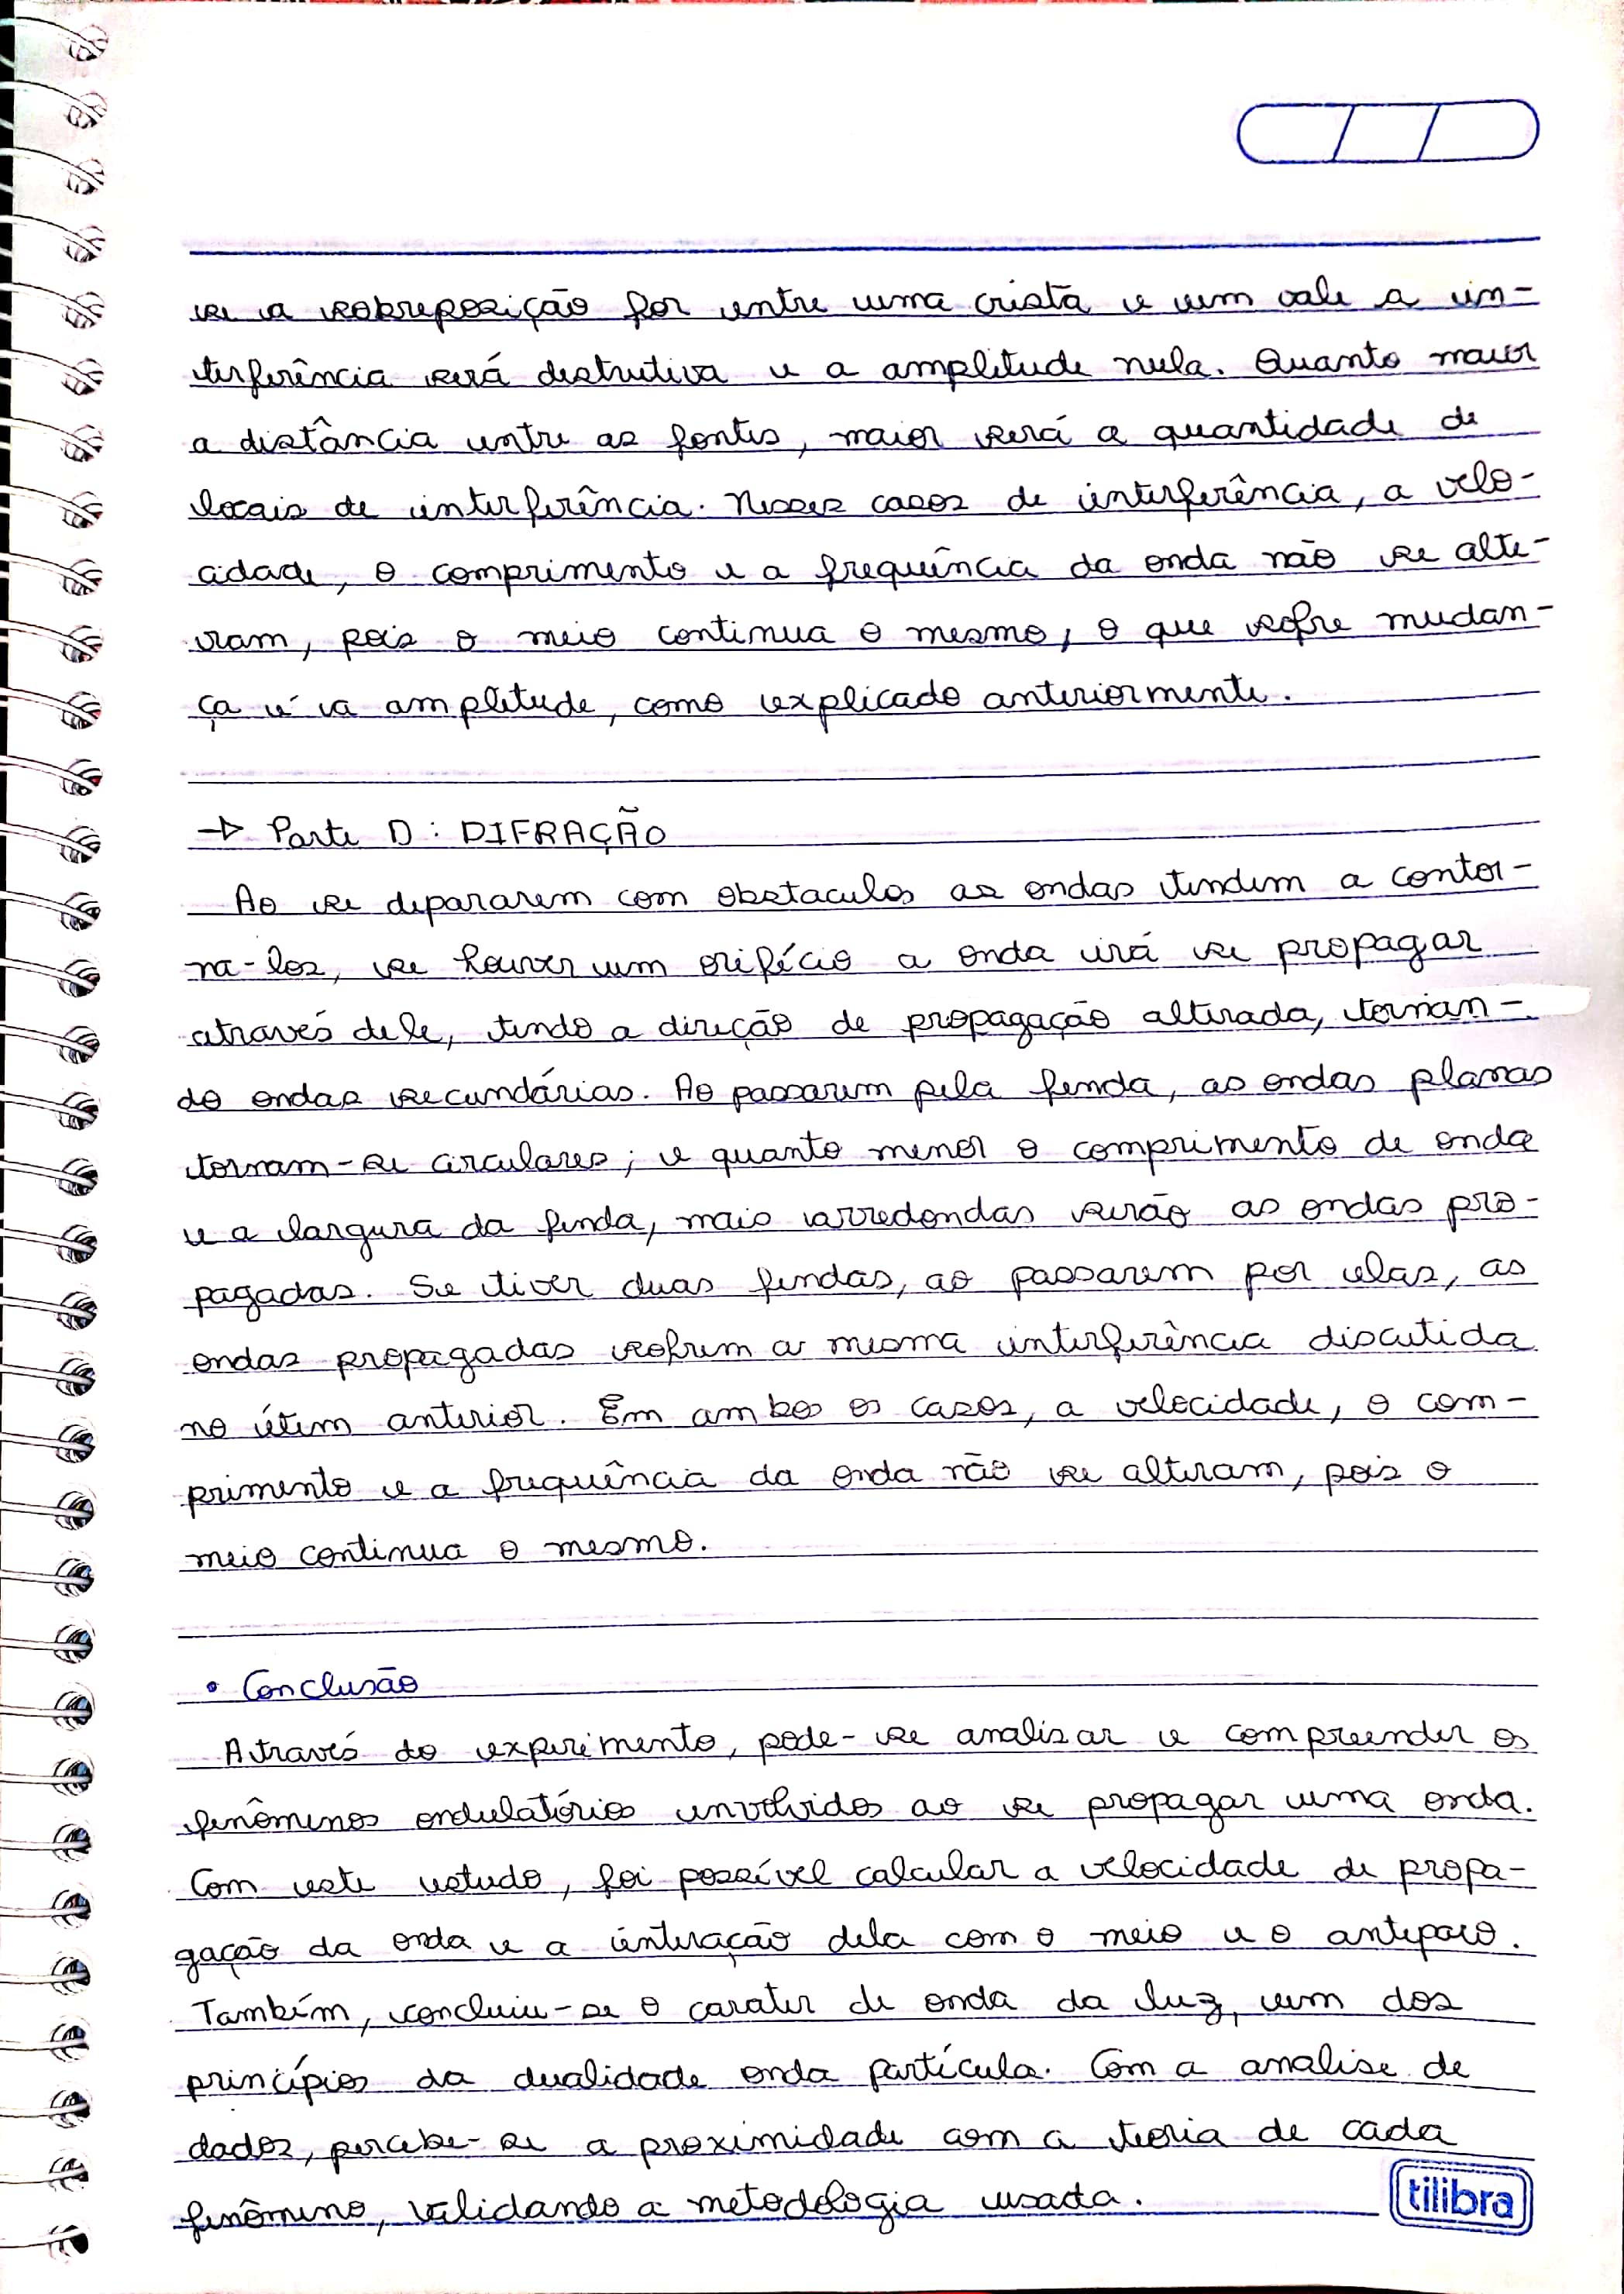 se a sobreposição for entre uma crista e um vale a in-
terferência será destrutiva e a amplitude nula. Quanto maior
a distância entre as fontes, maior será a quantidade de
locais de interferência. Nesses casos de interferência, a velo-
cidade, o comprimento e a frequência da onda não se alte-
ram, pois o meio continua o mesmo, o que sofre mudan-
ça é a amplitude, como explicado anteriormente.
→ Parte D: DIFRAÇÃO
Ao se depararem com obstaculos as ondas tendem a contor-
na-los, se houver um orifício a onda irá se propagar
através dele, tendo a direção de propagação alterada, tornan-
do ondas secundárias. Ao passarem pela fenda, as ondas planas
tornam-se circulares; e quanto menor o comprimento de onda
e a largura da fenda, mais arredondas serão as ondas pro-
pagadas. Se tiver duas fendas, ao passarem por elas, as
ondas propagadas sofrem a mesma interferência discutida
no ítem anterior. Em ambos os casos, a velocidade, o com-
primento e a frequência da onda não se alteram, pois o
meio continua o mesmo.
• Conclusão
Através do experimento, pode-se analisar e compreender os
fenômenos ondulatórios envolvidos ao se propagar uma onda.
Com este estudo, foi possível calcular a velocidade de propa-
gação da onda e a interação dela com o meio e o anteparo.
Também, concluiu-se o carater de onda da luz, um dos
princípios da dualidade onda partícula. Com a analise de
dados, percebe-se a proximidade com a teoria de cada
fenômeno, validando a metodologia usada.
tilibra